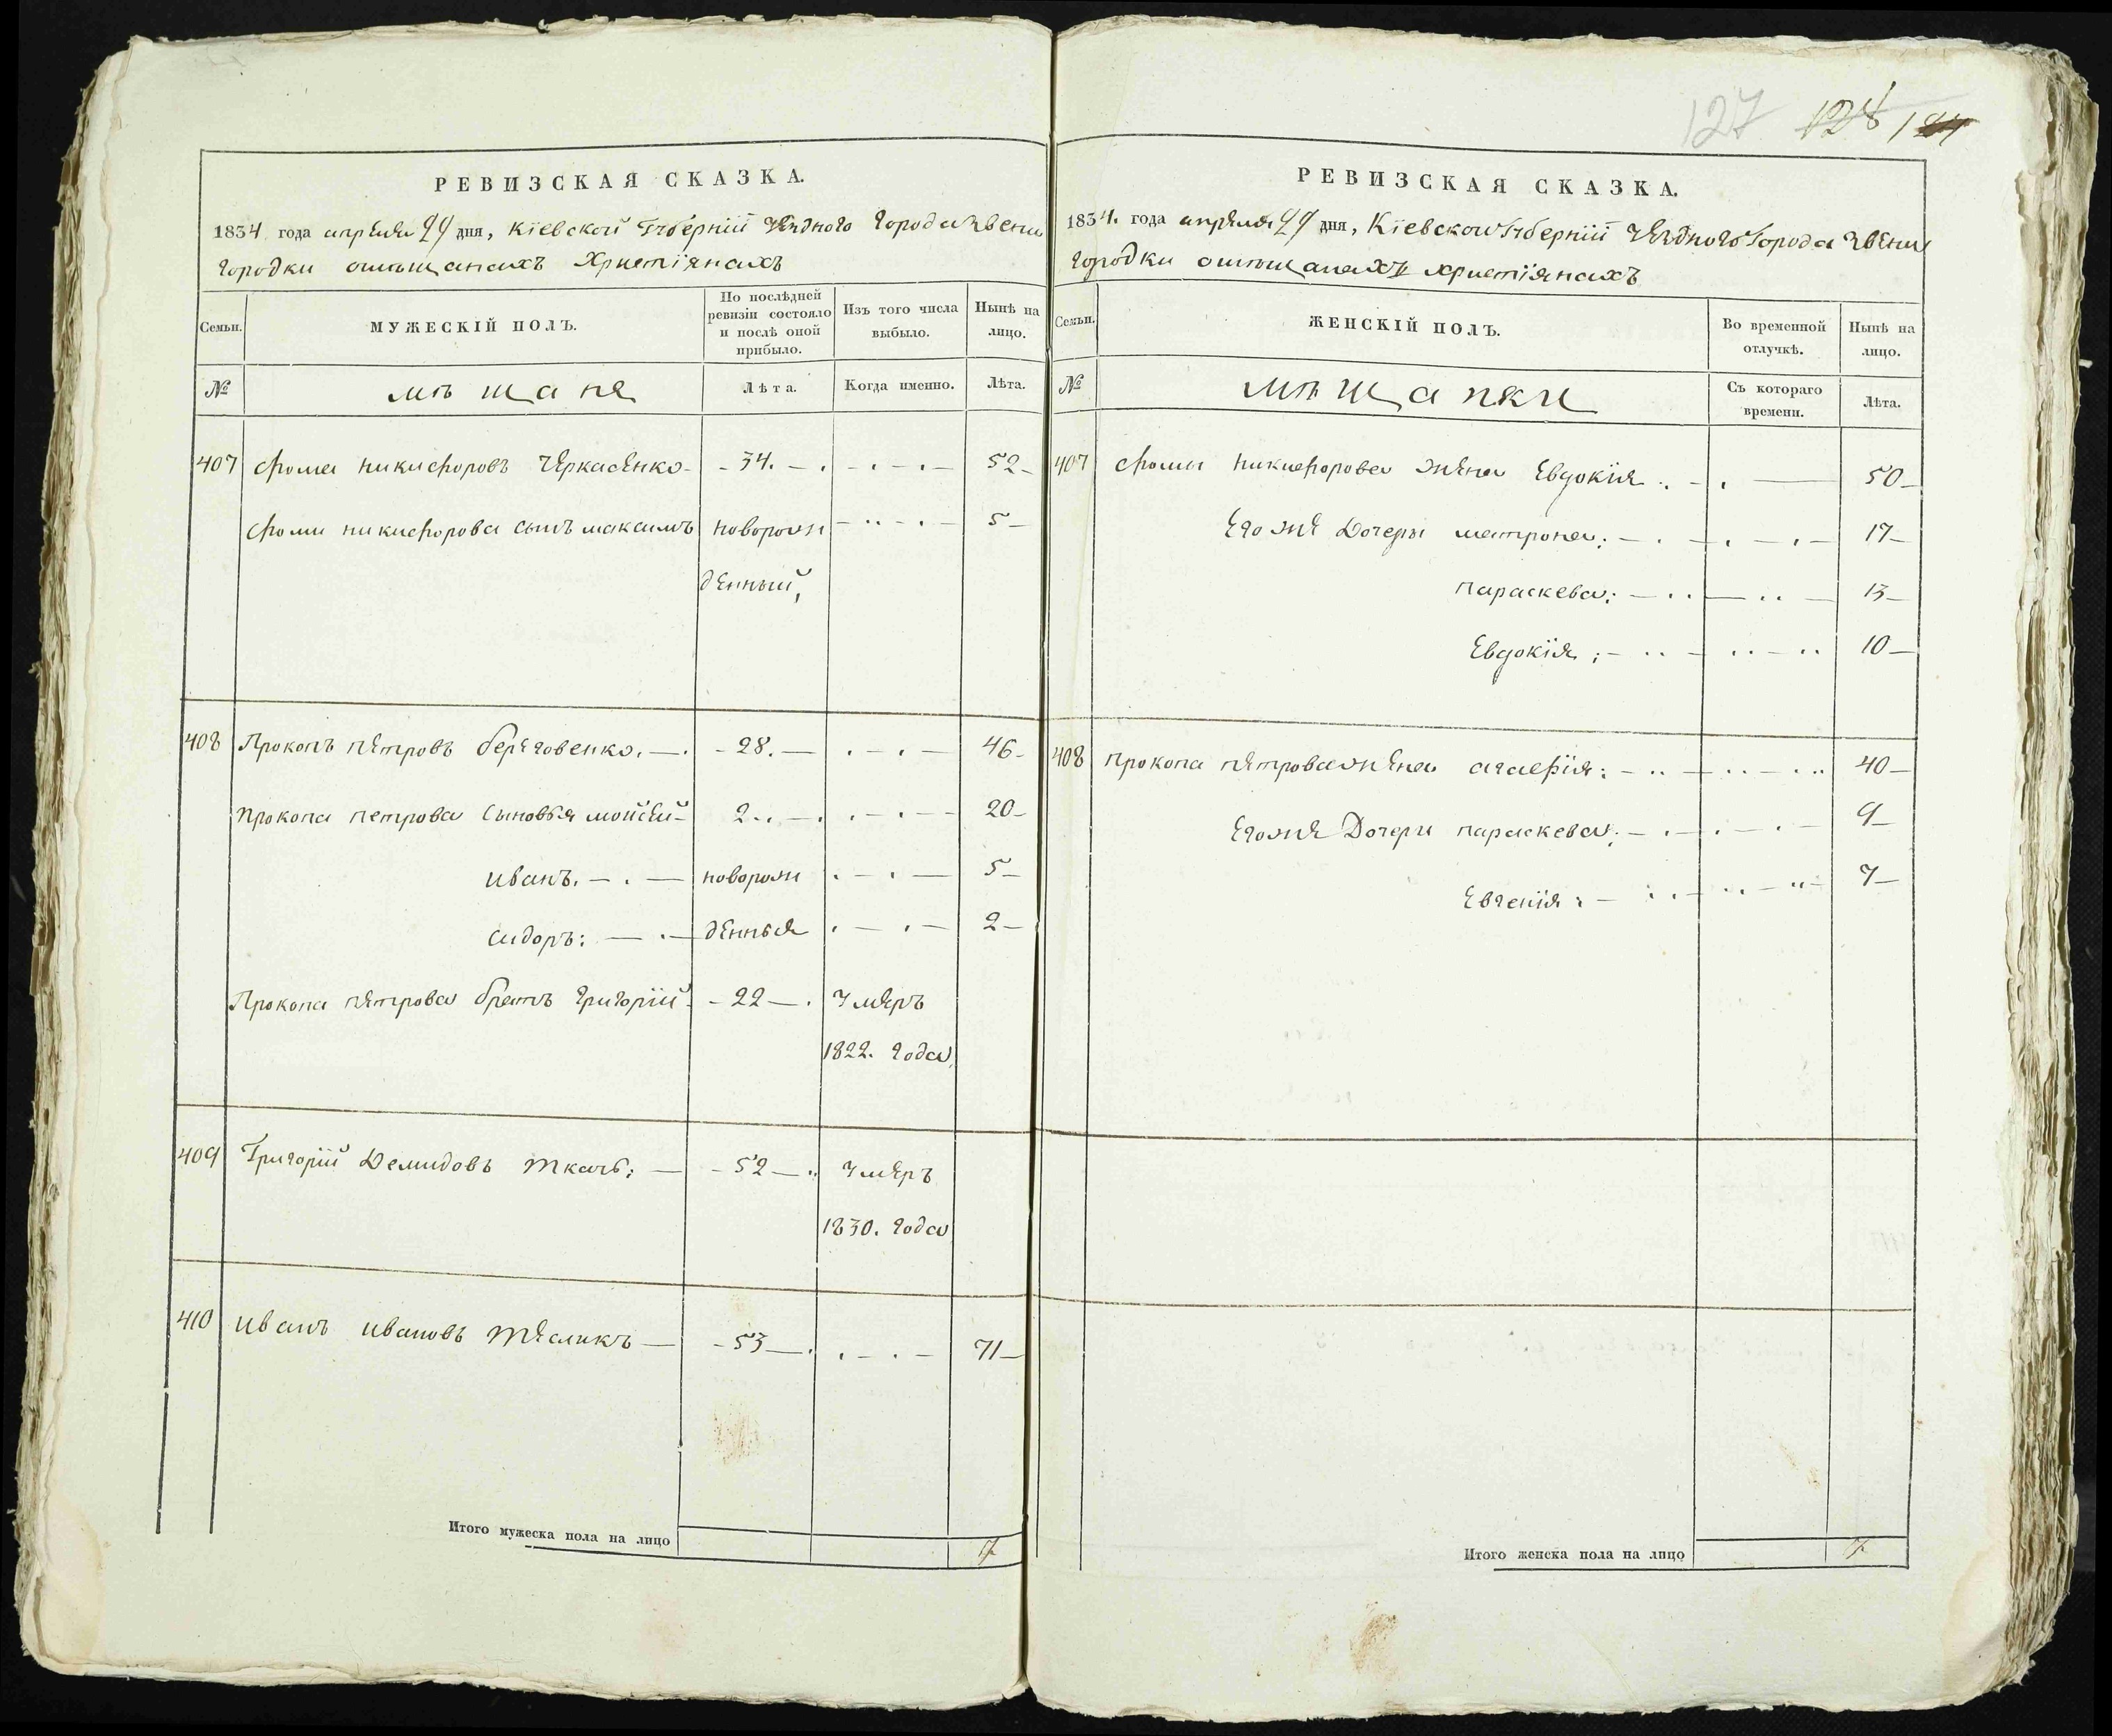 127 128
РЕВИЗСКАЯ СКАЗКА.
1834 года апреля 29 дня, Кіевской Губерніи Уѣзднаго города Звени
городки омѣщанахъ Христіянахъ
Семьи.
МУЖЕСКІЙ ПОЛЪ.
По послѣдней ревизіи состояло и послѣ оной прибыло.
Изъ того числа выбыло.
Нынѣ на лицо.
№
мѣщане
Лѣта.
Когда именно.
Лѣта.
407 Фома никифоровъ Черкасенко - 34. 52
Фоми никифорова сынъ максимъ новорож 5
денный,
408 Прокопъ петровъ береговенко. 28. 46
Прокопа петрова сыновья мойсей 2 20
иванъ. новорож 5
сидоръ: денныя 2
Прокопа петрова братъ григорій 22 умеръ
1822. года
409 Григорій Демидовъ ткачъ: 52 умеръ
1830. года
410 иванъ ивановъ тесликъ 53 71
Итого мужеска пола на лицо 7
РЕВИЗСКАЯ СКАЗКА.
1834. года апреля 29 дня, Кіевской Губерніи Уѣзднаго города Звени
городки омѣщанахъ христіянахъ
Семьи.
ЖЕНСКІЙ ПОЛЪ.
Во временной отлучкѣ.
Нынѣ на лицо.
№
мѣщанки
Съ котораго времени.
Лѣта.
407 Фомы никифорова жена Евдокія 50
Его же Дочеры матрона; 17
параскева; 13
Евдокія; 10
408 прокопа петрова жена агафія: 40
Егоже Дочери параскева; 9
Евгенія: 7
Итого женска пола на лицо 7